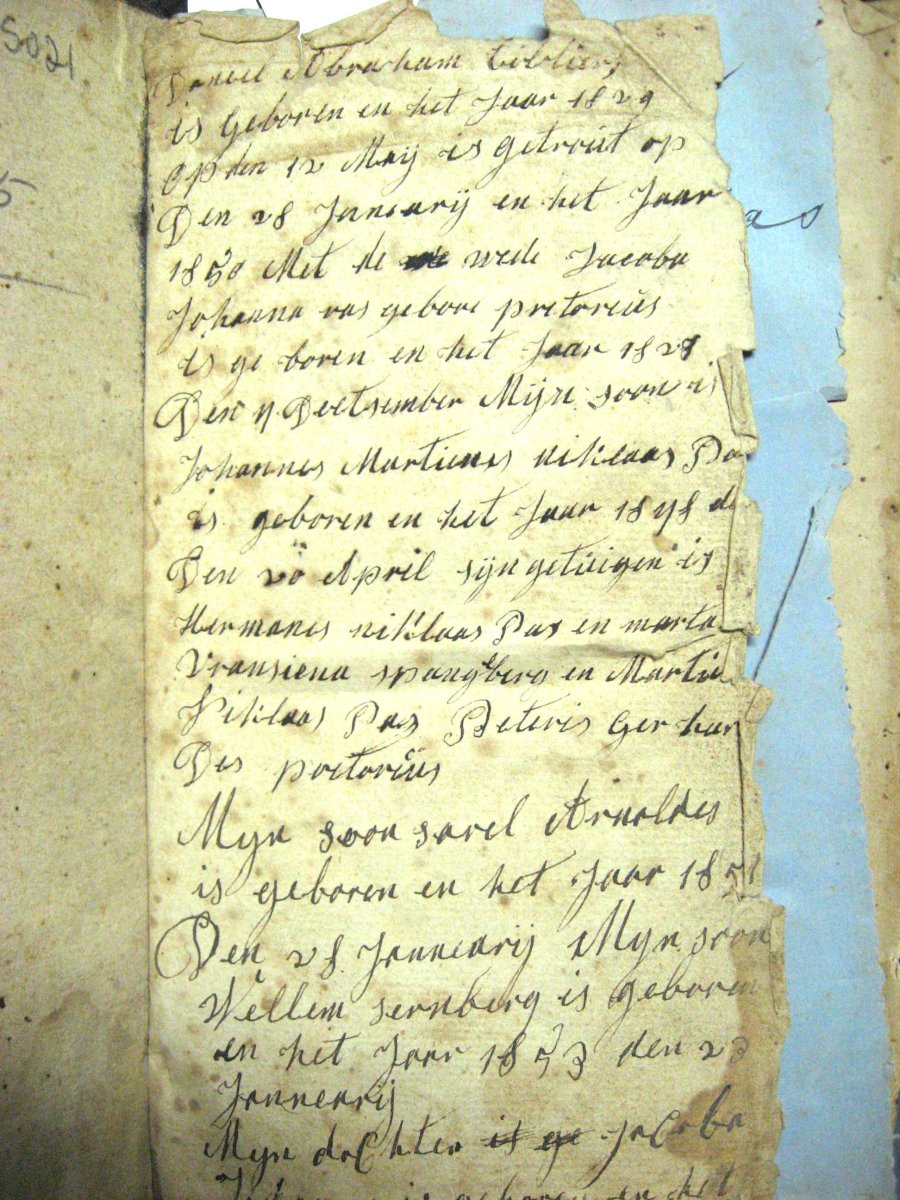 5021
5
Daniel Abraham Cilliers
is Geboren en het Jaar 1829
op den 12 Meij is getrout op
Den 28 Janearij en het Jaar
1850 Met de wede Jacoba
Johanna vas geboore pretoreus
is ge boren en het Jaar 1828
Den 4 Deetsember Mijn soon is
Johannes Martienes niklaas Pas
is geboren en het Jaar 1848 de
Den 20 April sijn getuigen is
Hermanes niklaas Pas en marta
Vransiena spangberg en Martie
Niklaas Pas Peteris Ger har
Des pretoreus
Myn soon sarel Arnoldes
is geboren en het Jaar 1851
Den 28 Jannearij Myn soon
Wellem sernberg is geboren
en het Jaar 1853 den 23
Jannearij
Myn dochter is ge Jacoba
is geboren en het
as